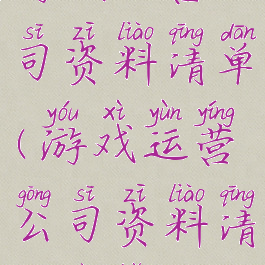 sī zī liào qīng dān
司资料清单
yóu xì yùn yíng
(游戏运营
gōng sī zī liào qīng
公司资料清